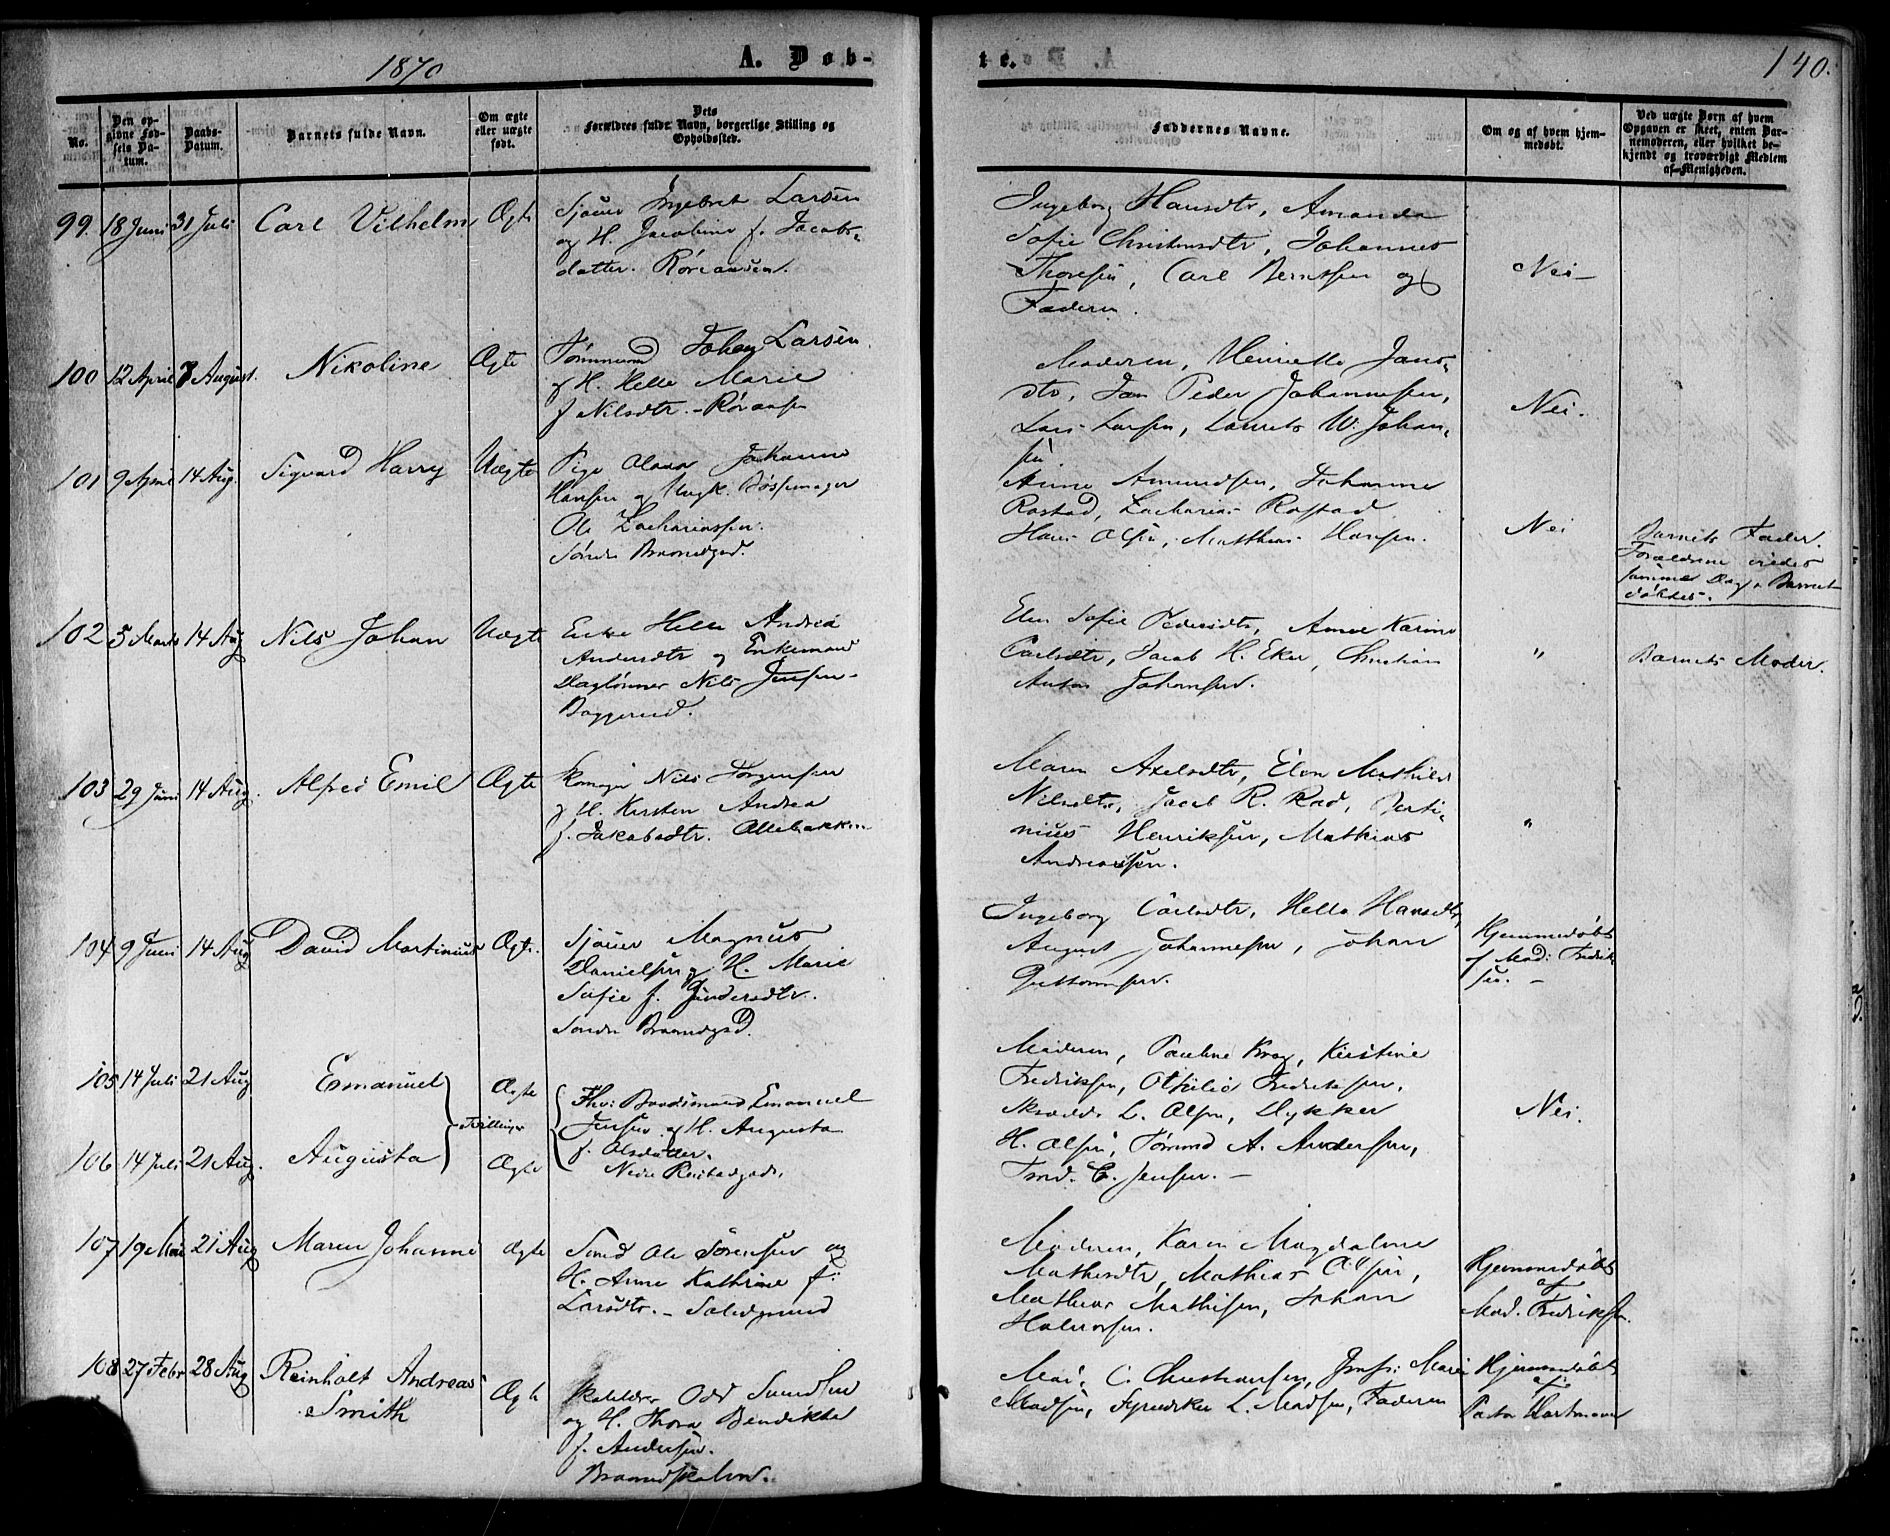 1870
A. Døb-
te.
140.
No.
Den op-
givne Fød-
sels Da-
tum.
Daabs-
Datum.
Barnets fulde Navn.
Om ægte
eller uægte
født.
Dets
Forældres fulde Navn, borgerlige Stilling og
Opholdssted.
Faddernes Navne.
Om og af hvem hjem-
medøbt.
Ved uægte Børn af hvem
Opgaven er skeet, enten Bar-
nemoderen, eller hvilket be-
kjendt og troværdigt Medlem
af Menigheden.
99. 18 Juni 31 Juli Carl Vilhelm Ægte
Sjøm Ingebret Larsen
og H. Jacobine f. Jacobs-
datter.
Ingeborg Hansdtr, Amanda
Sofie Christensdtr, Johannes
Thoresen, Carl Berntsen og
Faderen.
Nei
100 12 April 7 August. Nikoline Ægte
Tømmermd Johan Larsen
og H. Helle Marie
f Nilsdtr.
Moderen, Henriette Jans-
dtr, Jan Peder Johannesen,
Lars Larsen, Laurits W. Johan-
sen.
Nei.
101 9 April 14 Aug. Sigvard Harry Uægte
Pige Olava Johanne
Hansen og Ungk. Bøssemager
Ole Zachariassen.
Søndre Brændgd.
Anne Amundsen, Johanne
Rostad, Zacharias Rostad
Hans Olsen, Matthias Hansen.
Nei
Barnets Fader.
Forældrene viedes
samme Dag Barnet
døbtes.
102 5 Marts 14 Aug Nils Johan Uægte
Enke Helle Andrea
Andersdtr og Enkemand
Daglønner Nils Jensen
Baggerud.
Elen Sofie Pedersdtr, Anne Karine
Carlsdtr, Jacob H. Eker, Christian
Anton Johansen.
"
Barnets Moder.
103 29 Juni 14 Aug. Alfred Emil Ægte
Nils Jørgensen
og H. Karsten Andrea
f. Jakobsdtr. Ollebakken
Maren Axelsdtr, Elen Mathilde
Nilsdtr, Jacob R. Rød, Berti-
nius Henriksen, Mathias
Andreassen.
"
104 9 Juni 14 Aug David Martinius Ægte.
Sjøm Magnus
Danielsen og H. Marie
Sofie f. Andersdtr.
Søndre Brændgd.
Ingeborg Carlsdtr, Helle Hansdtr,
August Johannesen, Johan
Guttormsen.
Hjemmedøbt
af Mad: Fredrik-
sen.
105 14 Juli 21 Aug Emanuel Ægte
Tvillinger
Thv: Baadsmand Emanuel
Jensen og H. Augusta
f. Olsdatter.
106 14 Juli 21 Aug. Augusta Ægte
Moderen, Pauline Krog, Kristine
Fredriksen, Othilie Fredriksen,
L. Olsen, Dykker
H. Olsen, Tømmd A. Andersen,
Tmd. C. Jensen.
Nei.
107 19 Mai 21 Aug Maren Johanne Ægte
Smed Ole Sørensen og
H. Anne Kathrine f:
Larsdtr.
Moderen, Karen Magdalene
Mathisdtr, Mathias Olsen,
Mathias Mathisen, Johan
Halvorsen.
Hjemmedøbt
af
Mad. Fredriksen.
108 27 Febr 28 Aug Reinholt Andreas
Smith
Ægte
og H. Thora Bendikte
f. Andersen.
Mad. C. Christiansen, Jomf: Marie
Madsen, L. Madsen, Faderen
Hjemmedøbt
af
Pastor Hartmann